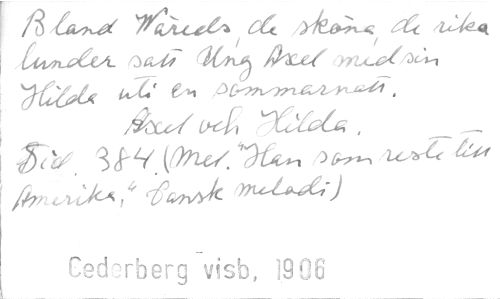 Bland Wäreds, de sköna, de rika
lunder satt Ung Axel med sin
Hilda uti en sommarnatt.
Axel och Hilda.
Sid. 384. (Mel. "Han som reste till
Amerika," Dansk melodi)
Cederberg visb, 1906